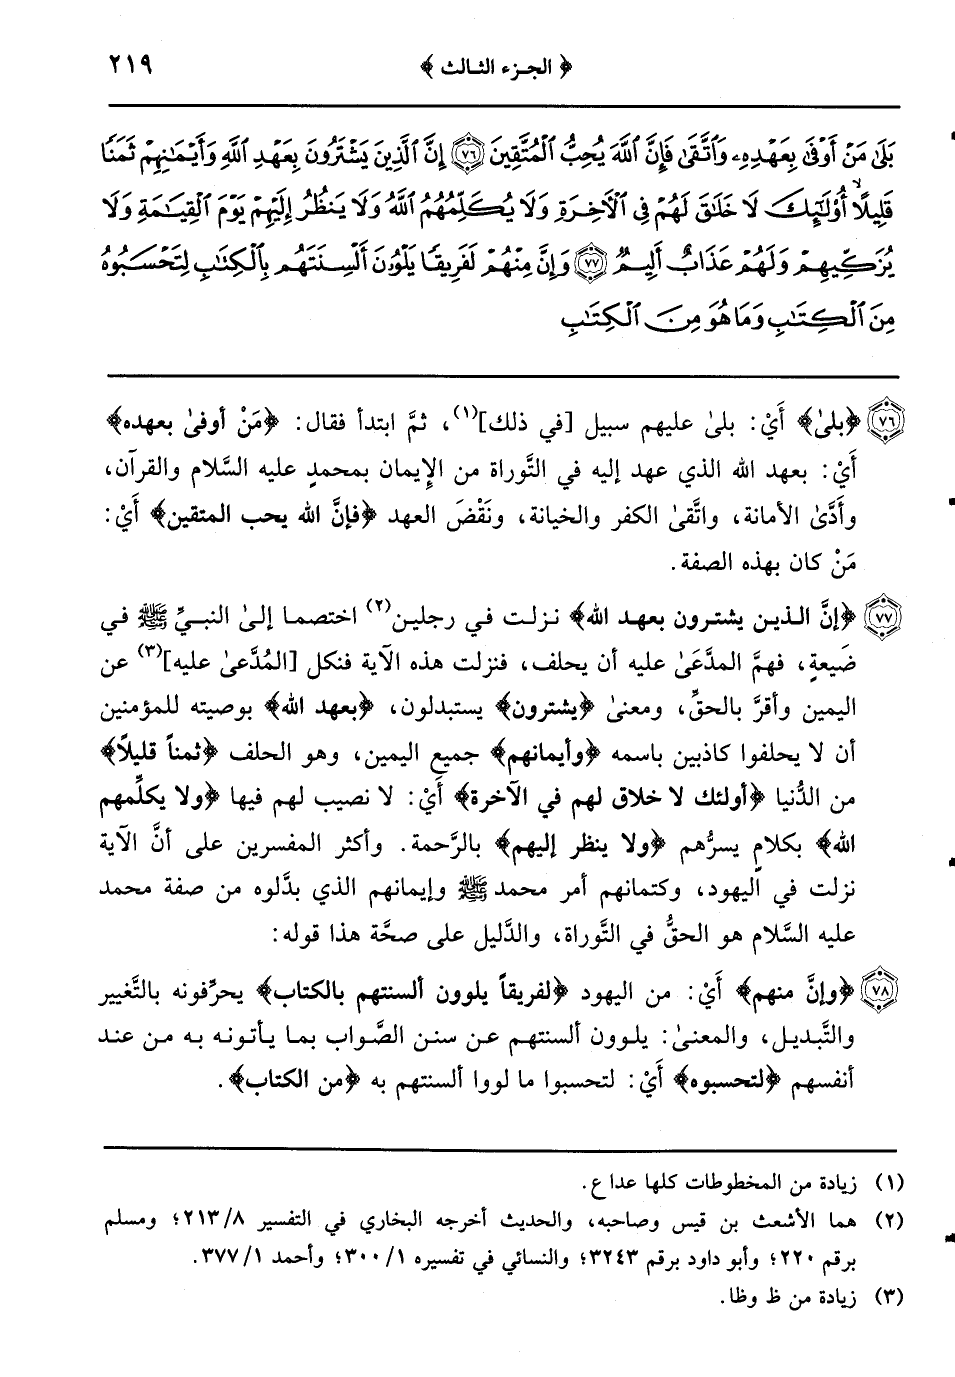 ﴿ الجزء الثالث ﴾ ٢١٩
بَلَىٰ مَنْ أَوْفَىٰ بِعَهْدِهِۦ وَٱتَّقَىٰ فَإِنَّ ٱللَّهَ يُحِبُّ ٱلْمُتَّقِينَ ٧٦ إِنَّ ٱلَّذِينَ يَشْتَرُونَ بِعَهْدِ ٱللَّهِ وَأَيْمَٰنِهِمْ ثَمَنًا
قَلِيلًا أُوْلَٰٓئِكَ لَا خَلَٰقَ لَهُمْ فِى ٱلْءَاخِرَةِ وَلَا يُكَلِّمُهُمُ ٱللَّهُ وَلَا يَنظُرُ إِلَيْهِمْ يَوْمَ ٱلْقِيَٰمَةِ وَلَا
يُزَكِّيهِمْ وَلَهُمْ عَذَابٌ أَلِيمٌ ٧٧ وَإِنَّ مِنْهُمْ لَفَرِيقًا يَلْوُۥنَ أَلْسِنَتَهُم بِٱلْكِتَٰبِ لِتَحْسَبُوهُ
مِنَ ٱلْكِتَٰبِ وَمَا هُوَ مِنَ ٱلْكِتَٰبِ
٧٦ ﴿بلىٰ﴾ أَيْ: بلىٰ عليهم سبيل [في ذلك](١)، ثمَّ ابتدأ فقال: ﴿مَنْ أوفىٰ بعهده﴾
أَيْ: بعهد الله الذي عهد إليه في التَّوراة من الإِيمان بمحمدٍ عليه السَّلام والقرآن،
وأدَّىٰ الأمانة، واتَّقىٰ الكفر والخيانة، ونَقْضَ العهد ﴿فإنَّ الله يحب المتقين﴾ أَيْ:
مَنْ كان بهذه الصفة.
٧٧ ﴿إنَّ الذين يشترون بعهد الله﴾ نزلت في رجلين(٢) اختصما إلىٰ النبيِّ ﷺ في
ضَيعةٍ، فهمَّ المدَّعَىٰ عليه أن يحلف، فنزلت هذه الآية فنكل [المُدَّعىٰ عليه](٣) عن
اليمين وأقرَّ بالحقِّ، ومعنىٰ ﴿يشترون﴾ يستبدلون، ﴿بعهد الله﴾ بوصيته للمؤمنين
أن لا يحلفوا كاذبين باسمه ﴿وأيمانهم﴾ جميع اليمين، وهو الحلف ﴿ثمناً قليلاً﴾
من الدُّنيا ﴿أولئك لا خلاق لهم في الآخرة﴾ أَيْ: لا نصيب لهم فيها ﴿ولا يكلِّمهم
الله﴾ بكلامٍ يسرُّهم ﴿ولا ينظر إليهم﴾ بالرَّحمة. وأكثر المفسرين على أنَّ الآية
نزلت في اليهود، وكتمانهم أمر محمدٍ ﷺ وإيمانهم الذي بدَّلوه من صفة محمد
عليه السَّلام هو الحقُّ في التَّوراة، والدَّليل على صحَّة هذا قوله:
٧٨ ﴿وإنَّ منهم﴾ أَيْ: من اليهود ﴿لفريقاً يلوون ألسنتهم بالكتاب﴾ يحرِّفونه بالتَّغيير
والتَّبديل، والمعنىٰ: يلوون ألسنتهم عن سنن الصَّواب بما يأتونه به من عند
أنفسهم ﴿لتحسبوه﴾ أَيْ: لتحسبوا ما لووا ألسنتهم به ﴿من الكتاب﴾.
(١) زيادة من المخطوطات كلها عدا ع.
(٢) هما الأشعث بن قيس وصاحبه، والحديث أخرجه البخاري في التفسير ٢١٣/٨؛ ومسلم
برقم ٢٢٠؛ وأبو داود برقم ٣٢٤٣؛ والنسائي في تفسيره ٣٠٠/١؛ وأحمد ٣٧٧/١.
(٣) زيادة من ظ وظا.